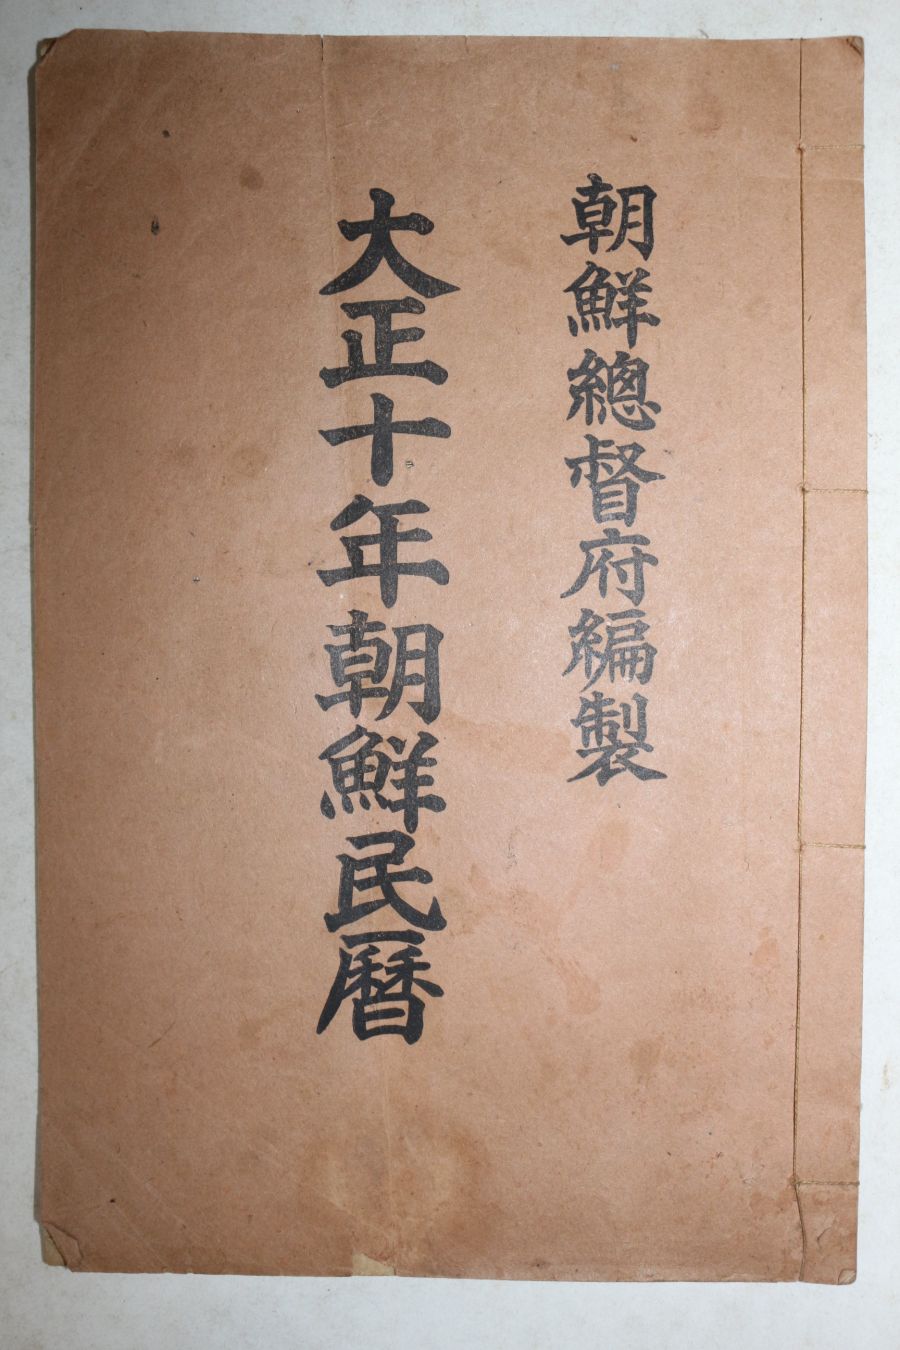 朝鮮總督府編製
大正十年朝鮮民曆